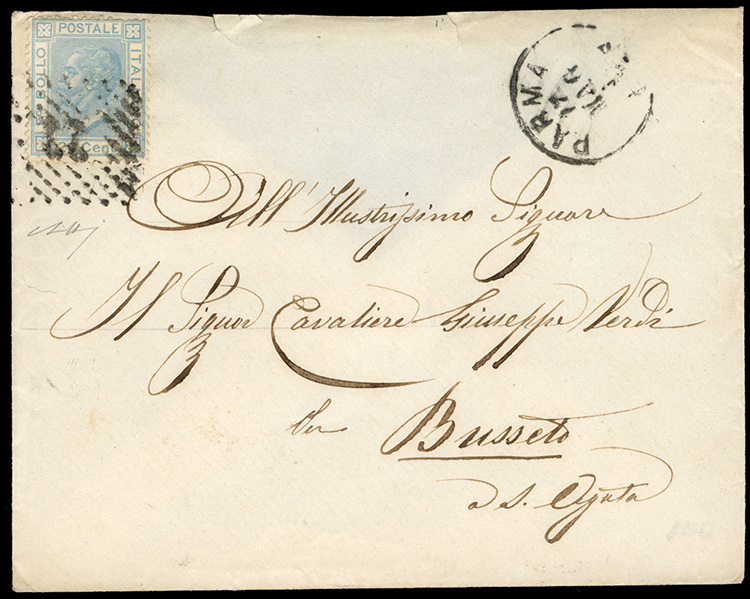 BOLLO POSTALE ITAL
20 Cent
PARMA
MAG
All' Illustrissimo Signore
Il Signor Cavaliere Giuseppe Verdi
per Busseto
a S. Agata